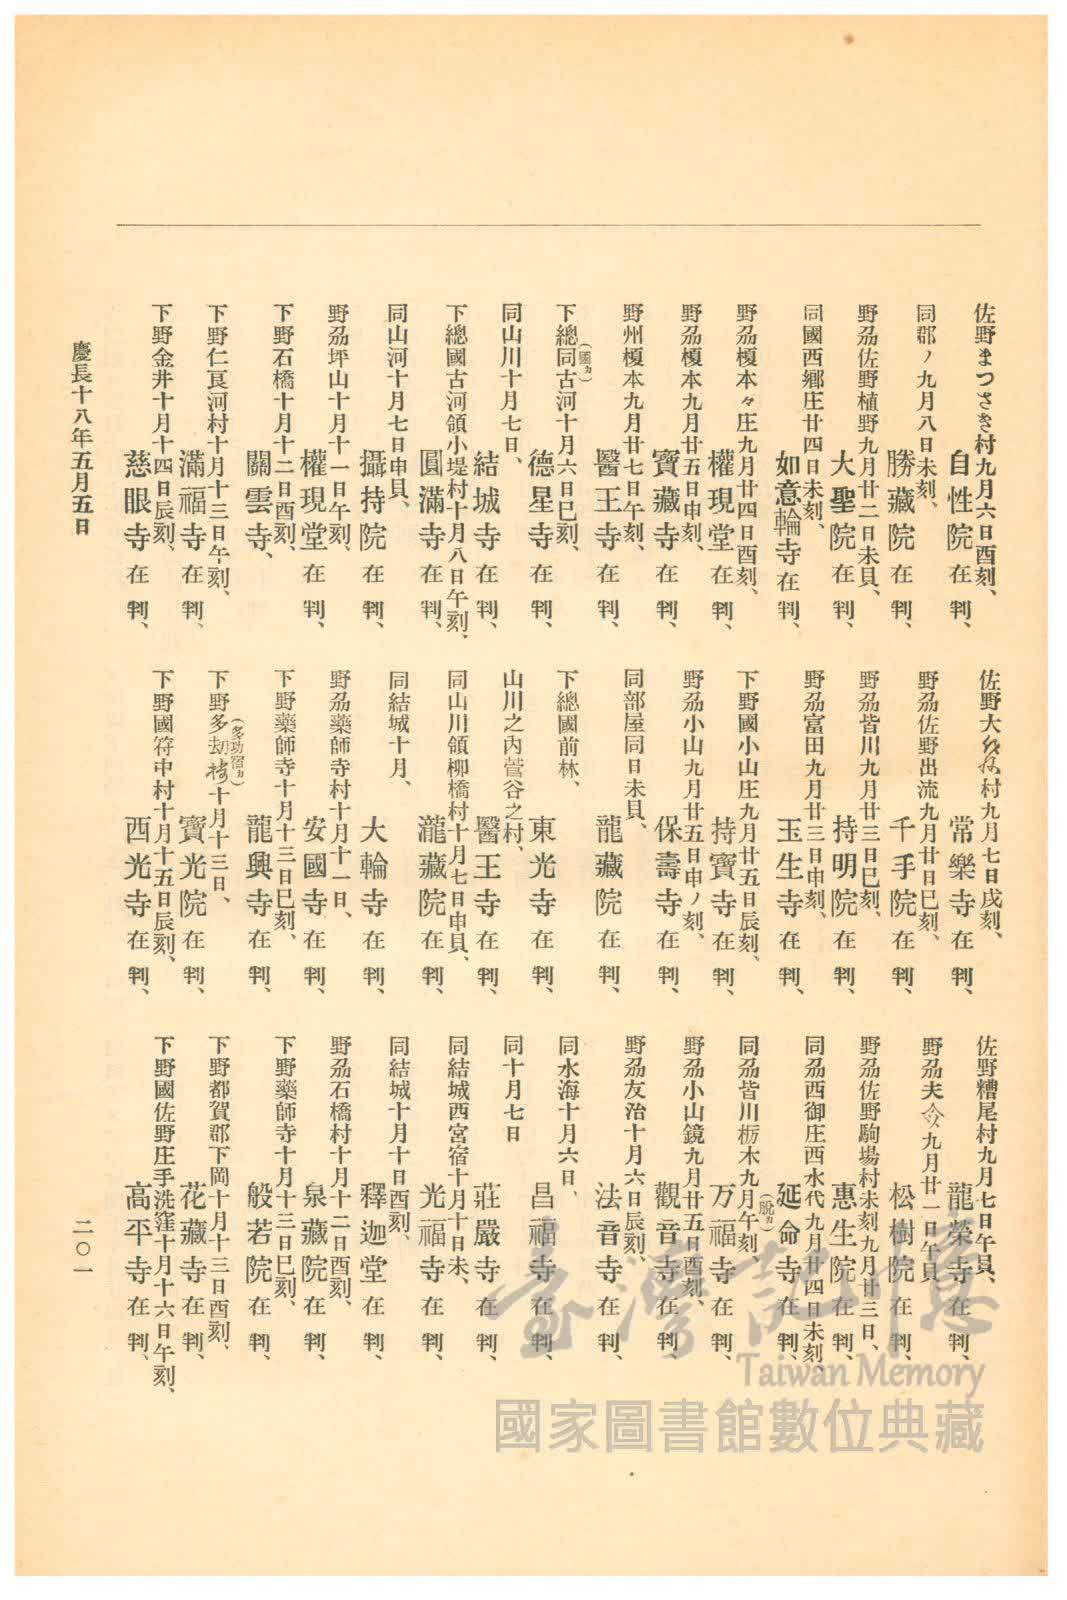 佐野まつさき村九月六日酉刻、
自性院在判、
同郡ノ九月八日未刻、
勝藏院在判、
野刕佐野植野九月廿二日未貝、
大聖院在判、
同國西鄕庄廿四日未刻、
如意輪寺在判、
野刕榎本々庄九月廿四日酉刻、
權現堂在判、
野刕榎本九月廿五日申刻、
寶藏寺在判、
野州榎本九月廿七日午刻、
醫王寺在判、
下總同(國カ)古河十月六日巳刻、
德星寺在判、
同山川十月七日、
結城寺在判、
下總國古河領小堤村十月八日午刻、
圓滿寺在判、
同山河十月七日申貝、
攝持院在判、
野刕坪山十月十一日午刻、
權現堂在判、
下野石橋十月十二日酉刻、
關雲寺、
下野仁良河村十月十三日午刻、
滿福寺在判、
下野金井十月十四日辰刻、
慈眼寺在判、
佐野大村九月七日戌刻、
常樂寺在判、
野刕佐野出流九月廿日巳刻、
千手院在判、
野刕皆川九月廿三日巳刻、
持明院在判、
野刕富田九月廿三日申刻、
玉生寺在判、
下野國小山庄九月廿五日辰刻、
持寶寺在判、
野刕小山九月廿五日申ノ刻、
保壽寺在判、
同部屋同日未貝、
龍藏院在判、
下總國前林、
東光寺在判、
山川之内菅谷之村、
醫王寺在判、
同山川領柳橋村十月七日申貝、
瀧藏院在判、
同結城十月、
大輪寺在判、
野刕藥師寺村十月十一日、
安國寺在判、
下野藥師寺十月十三日巳刻、
龍興寺在判、
下野多劫(多功宿カ)十月十三日、
寶光院在判、
下野國符中村十月十五日辰刻、
西光寺在判、
佐野糟尾村九月七日午貝、
龍榮寺在判、
野刕夫九月廿一日午貝
松樹院在判、
野刕佐野駒場村未刻九月廿三日、
惠生院在判、
同刕西御庄西水代九月廿四日未刻、
延命寺在判、
同刕皆川栃木九月(脫カ)午刻、
万福寺在判、
野刕小山鏡九月廿五日酉刻、
觀音寺在判、
野刕友治十月六日辰刻、
法音寺在判、
同水海十月六日、
昌福寺在判、
同十月七日
莊嚴寺在判、
同結城西宮宿十月十日未、
光福寺在判、
同結城十月十日酉刻、
釋迦堂在判、
野刕石橋村十月十二日酉刻、
泉藏院在判、
下野藥師寺十月十三日巳刻、
般若院在判、
下野都賀郡下岡十月十三日酉刻、
花藏寺在判、
下野國佐野庄手洗窪十月十六日午刻、
高平寺在判、
慶長十八年五月五日
二〇一
臺灣記憶
Taiwan Memory
國家圖書館數位典藏